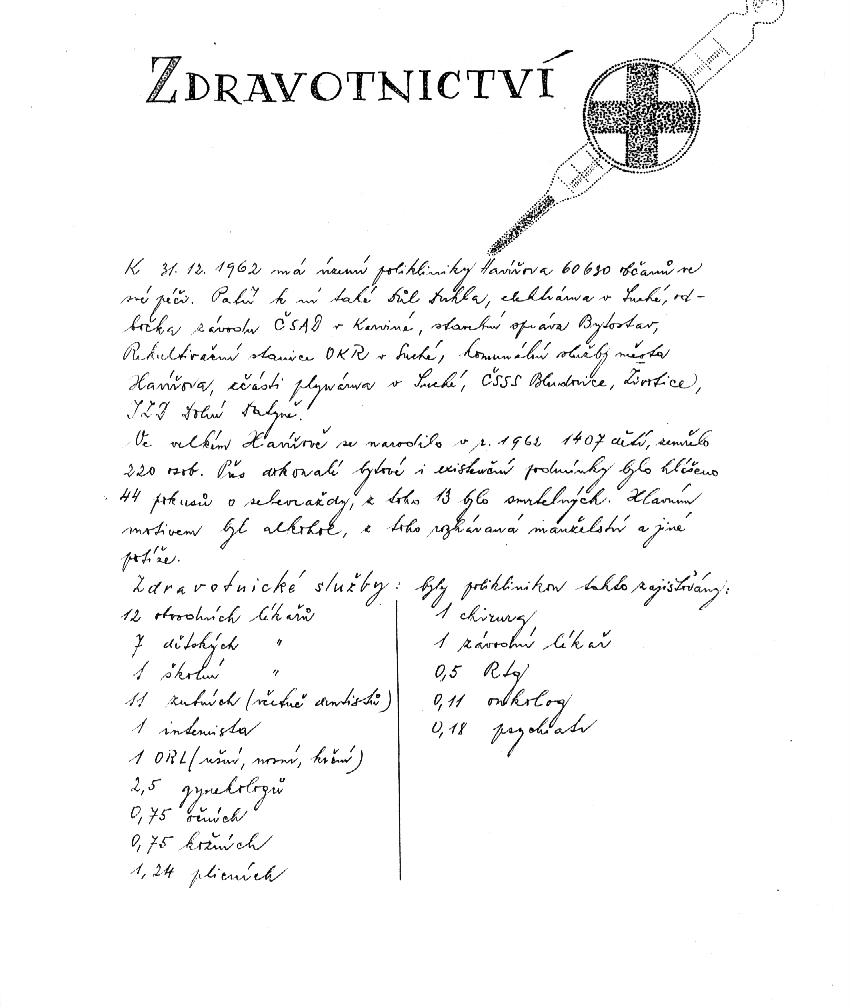 ZDRAVOTNICTVÍ
K 31. 12. 1962 má území polikliniky Havířova 60630 občanů ve
své péči. Patří k ní také Důl Dukla, elektrárna v Suché, od-
bočka závodu ČSAD v Karviné, stavební správa Bytostav,
Rekultivační stanice OKR v Suché, komunální služby města
Havířova, zčásti plynárna v Suché, ČSSS Bludovice, Životice,
JZD Dolní Datyně.
Ve velkém Havířově se narodilo v r. 1962 1407 dětí, zemřelo
220 osob. Přes dokonalé bytové i existenční podmínky bylo hlášeno
44 pokusů o sebevraždy, z toho 13 bylo smrtelných. Hlavním
motivem byl alkohol, z toho rozháraná manželství a jiné
potíže.
Zdravotnické služby: byly poliklinikou takto zajišťovány:
12 obvodních lékařů
7 dětských "
1 školní "
11 zubních (včetně dentistů)
1 internista
1 ORL (ušní, nosní, krční)
2,5 gynekologů
0,75 očních
0,75 kožních
1,24 plicních
1 chirurg
1 závodní lékař
0,5 Rtg
0,11 onkolog
0,18 psychiatr